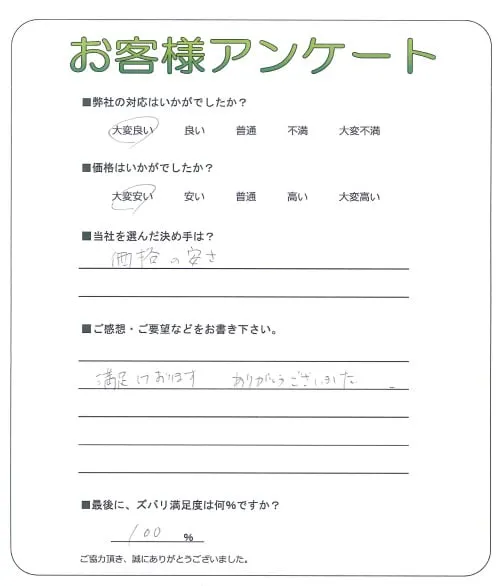 お客様アンケート
■弊社の対応はいかがでしたか？
大変良い 良い 普通 不満 大変不満
■価格はいかがでしたか？
大変安い 安い 普通 高い 大変高い
■当社を選んだ決め手は？
価格の安さ
■ご感想・ご要望などをお書き下さい。
満足しております ありがとうございました。
■最後に、ズバリ満足度は何%ですか？
100 %
ご協力頂き、誠にありがとうございました。